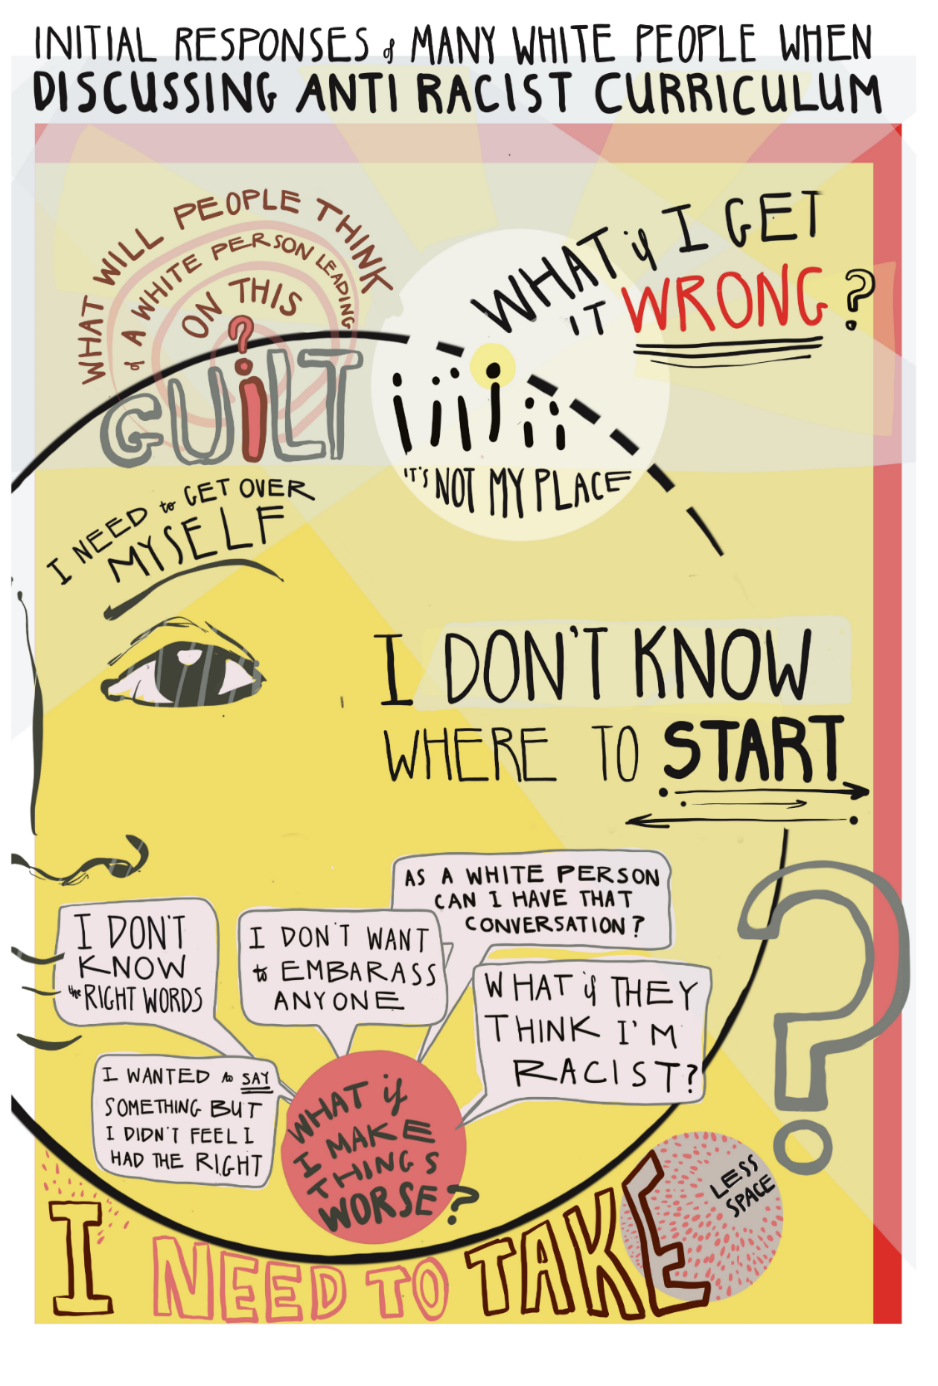 INITIAL RESPONSES of MANY WHITE PEOPLE WHEN
DISCUSSING ANTI RACIST CURRICULUM
WHAT WILL PEOPLE THINK
of A WHITE PERSON LEADING
ON THIS
?
GUILT
WHAT if I GET
IT WRONG?
IT'S NOT MY PLACE
I NEED to GET OVER
MYSELF
I DON'T KNOW
WHERE TO START
AS A WHITE PERSON
CAN I HAVE THAT
CONVERSATION?
I DON'T
KNOW
the RIGHT WORDS
I DON'T WANT
to EMBARASS
ANYONE
WHAT if THEY
THINK I'M
RACIST?
I WANTED to SAY
SOMETHING BUT
I DIDN'T FEEL I
HAD THE RIGHT
WHAT if
I MAKE
THINGS
WORSE?
?
I NEED TO TAKE
LESS
SPACE